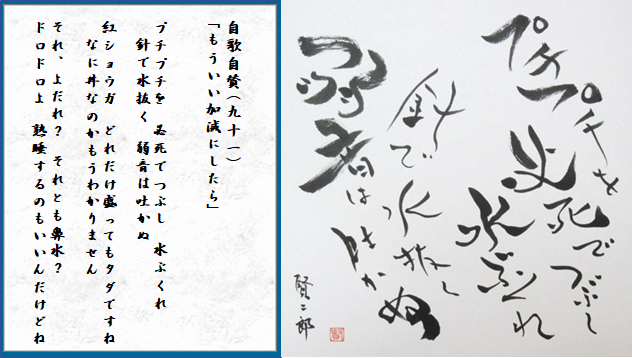 自歌自賛(九十一)
「もういい加減にしたら」
プチプチを 必死でつぶし 水ぶくれ
針で水抜く 弱音は吐かぬ
紅ショウガ どれだけ盛ってもタダですね
なに丼なのかもうわかりません
それ、よだれ? それとも鼻水?
ドロドロよ 熟睡するのもいいんだけどね
プチプチを
必死でつぶし
水ぶくれ
針で水抜く
弱音は吐かぬ
賢二郎